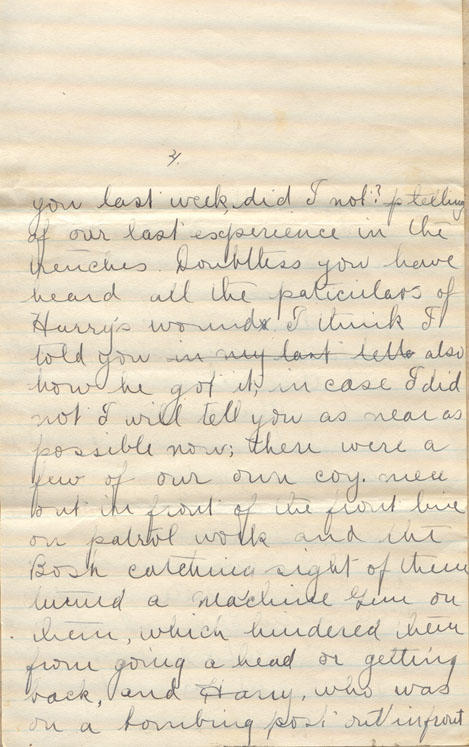 2/.
you last week, did I not? telling
of our last experience in the
trenches. Doubtless you have
heard all the paticulars of
Harry's wounds I think I
told you in my last lette also
how he got it, in case I did
not I will tell you as near as
possible now; there were a
few of our own coy. men
out in front of the front line
on patrol work and the
Bosh catching sight of them
turned a machine Gun on
them, which hindered them
from going a head or getting
back, and Harry, who was
on a bombing post out infront